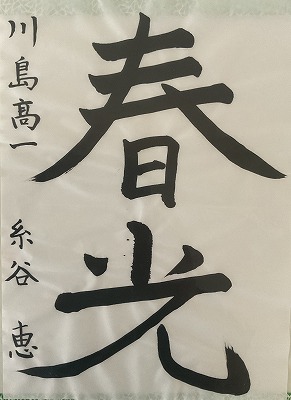 春光
川島髙一 糸谷 恵